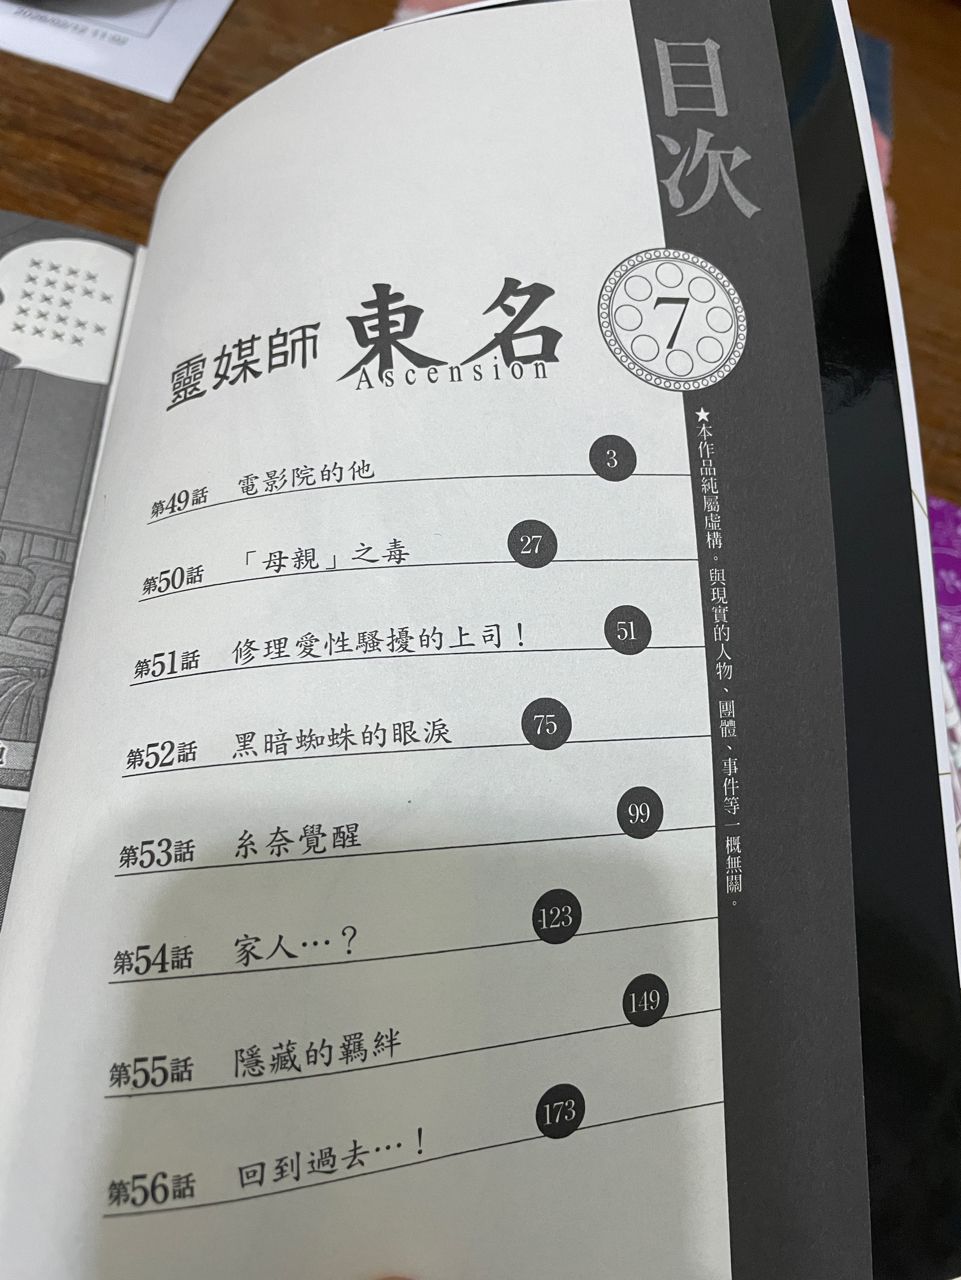 目次
靈媒師 東名
Ascension
7
第49話 電影院的他 3
第50話 「母親」之毒 27
第51話 修理愛性騷擾的上司！ 51
第52話 黑暗蜘蛛的眼淚 75
第53話 糸奈覺醒 99
第54話 家人…？ 123
第55話 隱藏的羈絆 149
第56話 回到過去…！ 173
★本作品純屬虛構。與現實的人物、團體、事件等一概無關。